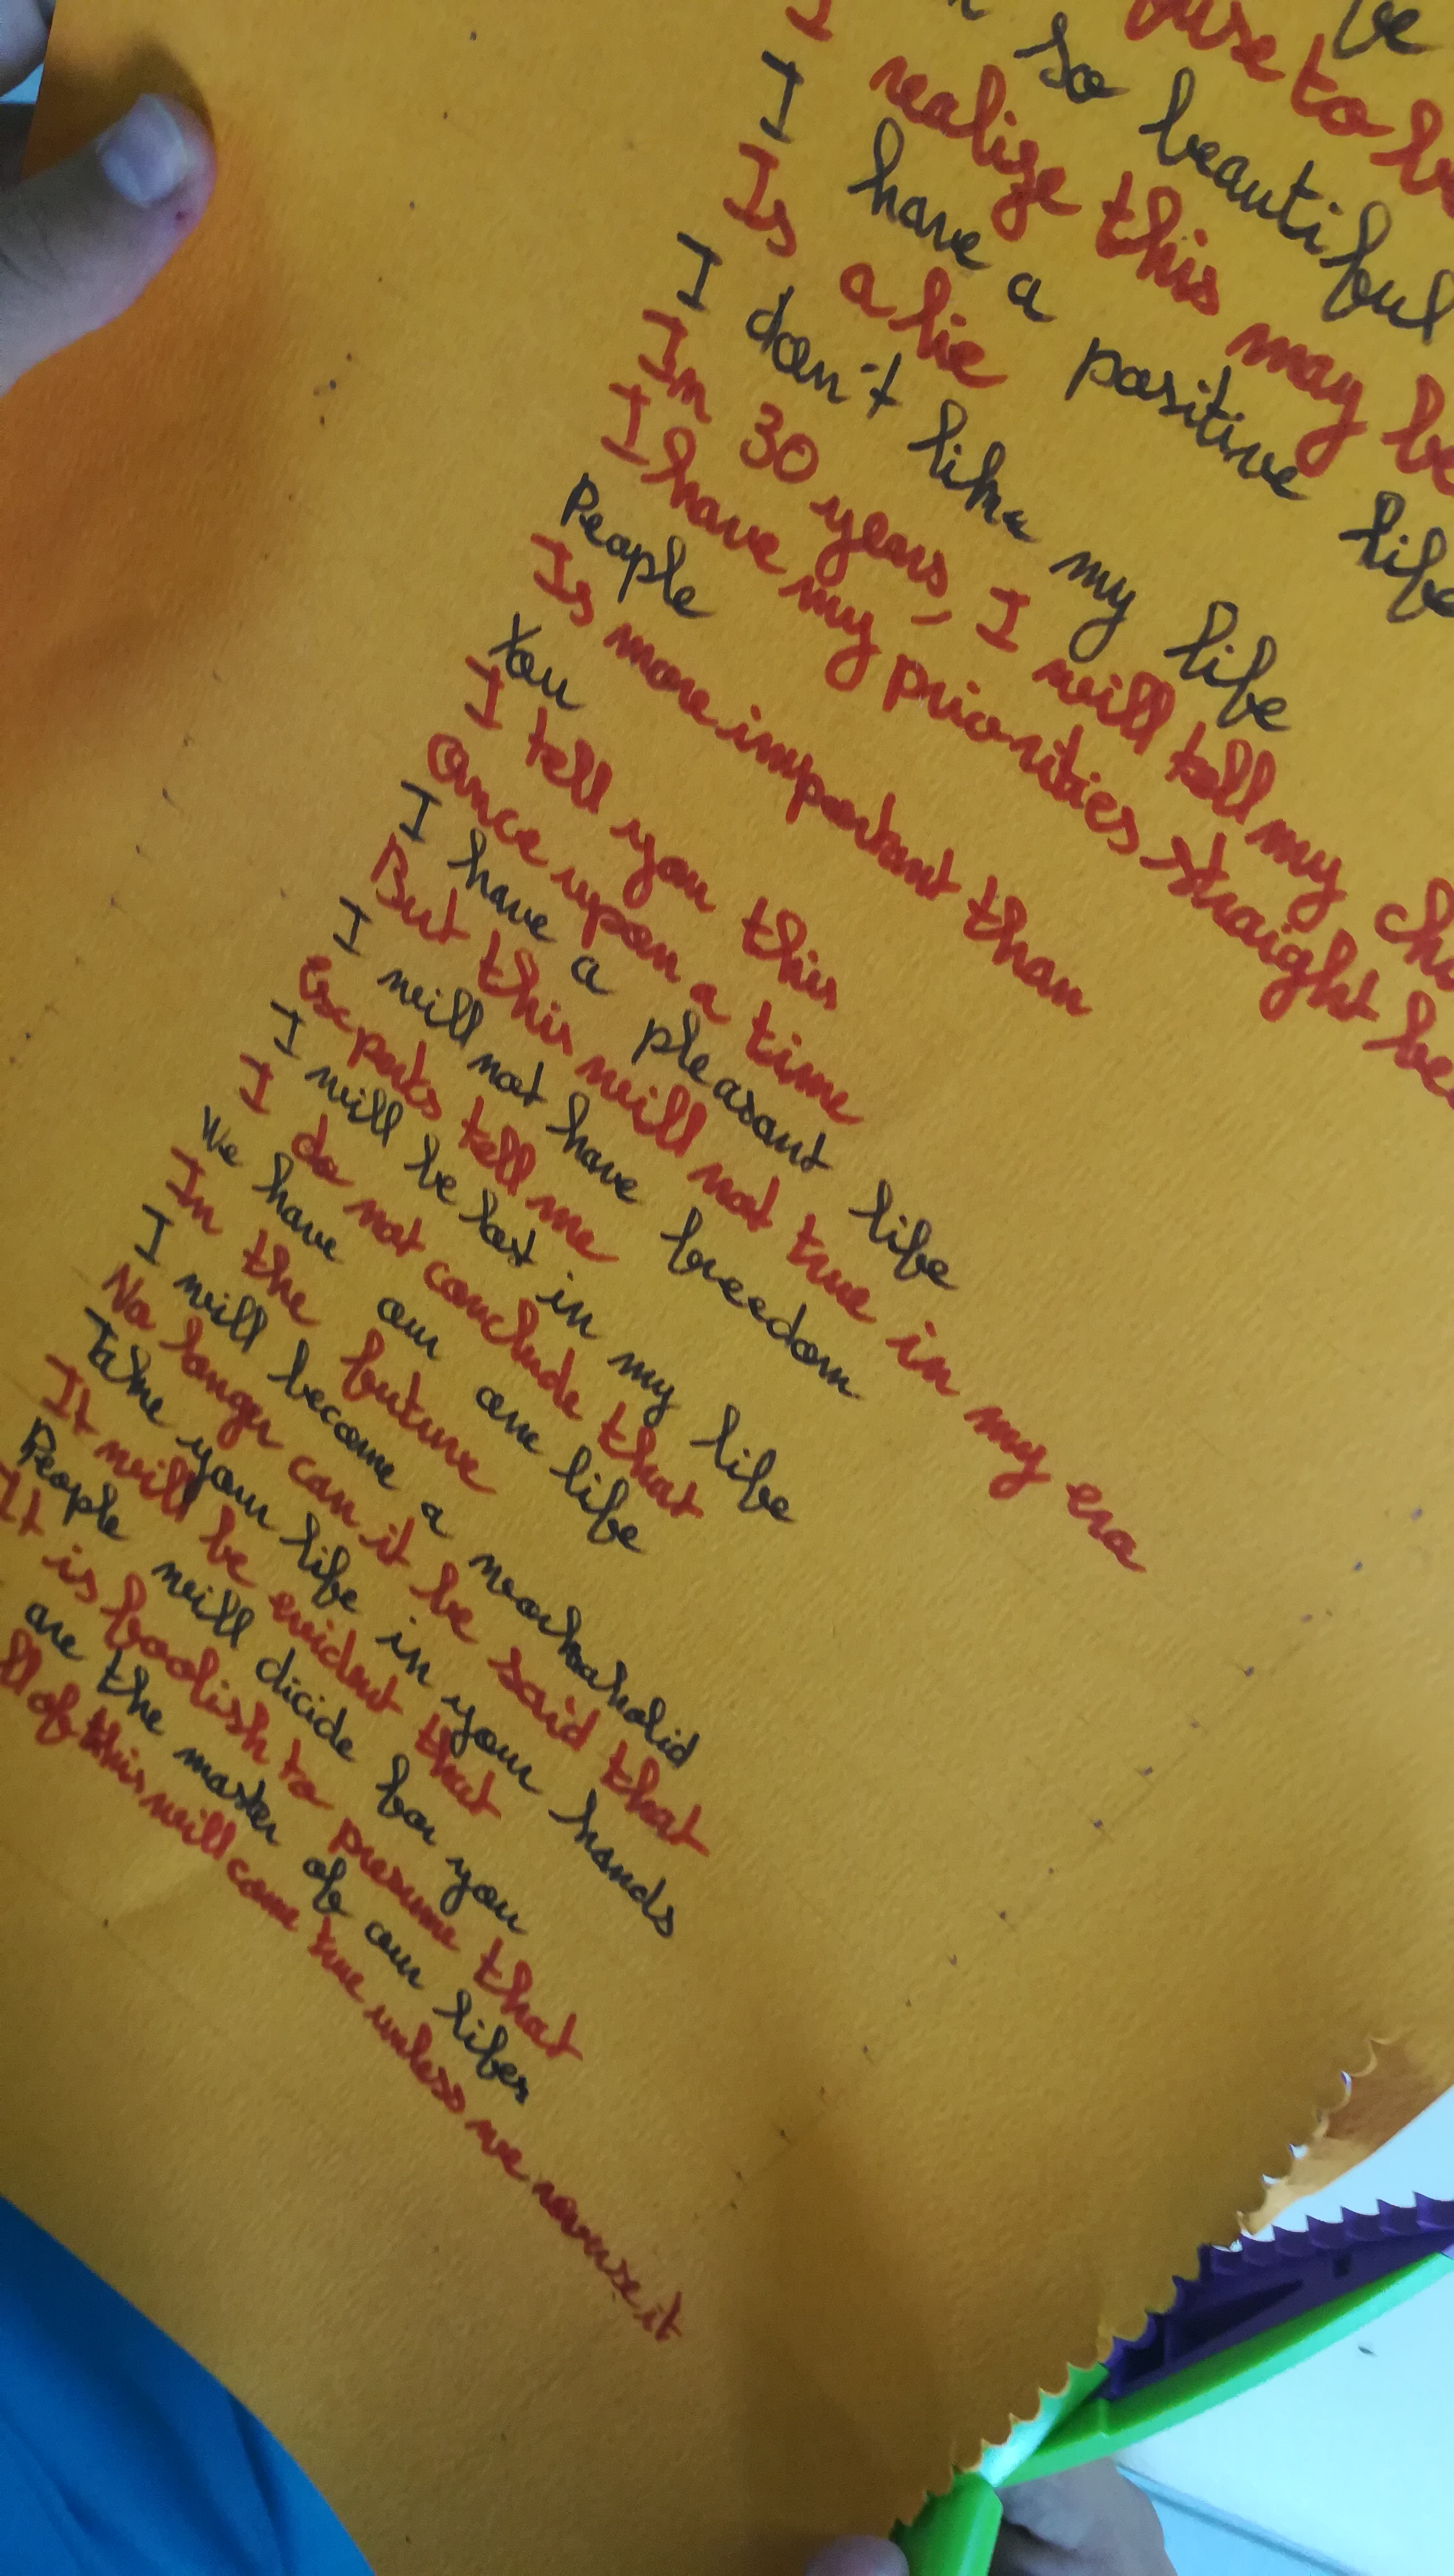 be
I refuse to be
so beautiful
I realize this may be
I have a positive life
Is a lie
I don't like my life
In 30 years, I will tell my
I have my priorities straight be
People
Is more important than
You
I tell you this
Once upon a time
I have a pleasant life
But this will not true in my era
I will not have freedom
Experts tell me
I will be lost in my life
I do not conclude that
We have our one life
In the future
I will become a workaholid
No longer can it be said that
Take your life in your hands
It will be evident that
People will dicide for you
It is foolish to presume that
are the master of our lifes
ll of this will come true unless we reverse it